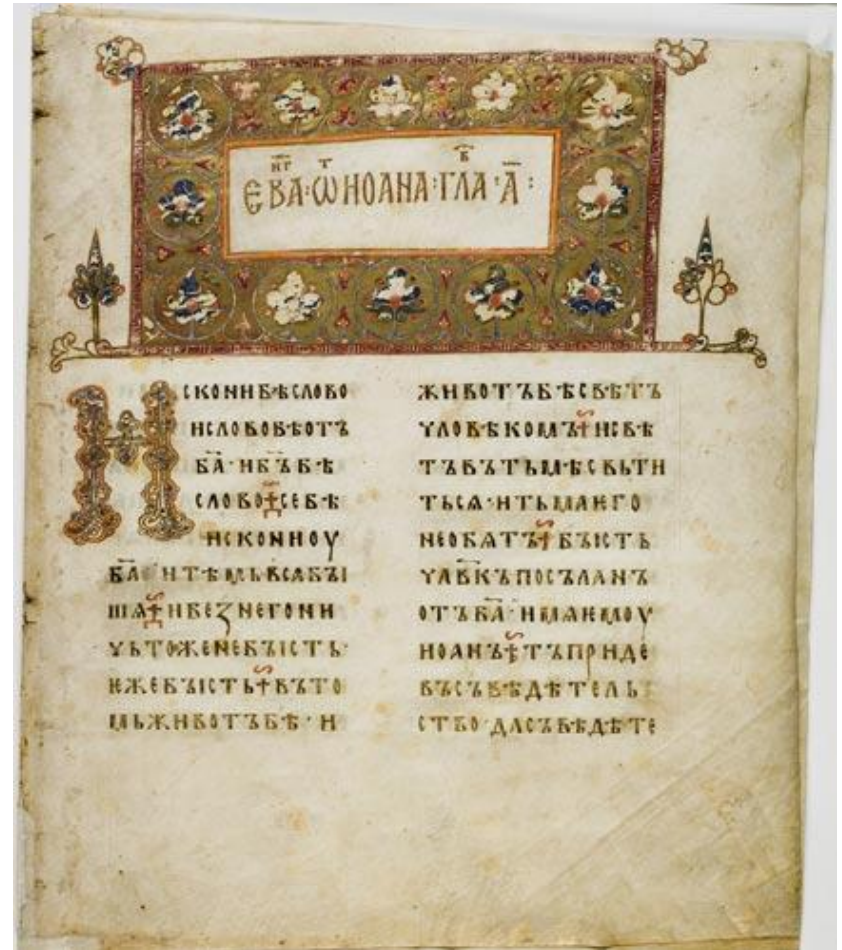 ЄВАНГ ѠТ ИОАНА ГЛАВ А҃
ИСКОНИБѢСЛОВО
ИСЛОВОБѢОТЪ
БА҃·ИБЪ҃БѢ
СЛОВО·СЕБѢ
ИСКОНИОУ
БА҃·ИТѢМЬВСѦБЫ
ШѦ·ИБЕЗНЕГОНИ
ЧЬТОЖЕНЕБЫСТЬ·
ЕЖЕБЫСТЬ·ВЪТО
МЬЖИВОТЪБѢ·И
ЖИВОТЪБѢСВѢТЪ
ЧЛОВѢКОМЪ·ИСВѢ
ТЪВЪТЬМѢСВЬТИ
ТЬСѦ·ИТЬМАЕГО
НЕОБѦТЪ·БЫСТЬ
ЧЛ҃ВКЪПОСЪЛАНЪ
ОТЪБА҃·ИМѦЕМОУ
ИОАНЪ·ТЪПРИДЕ
ВЪСЪВѢДѢТЕЛЬ
СТВО·ДАСЪВѢДѢТЕ